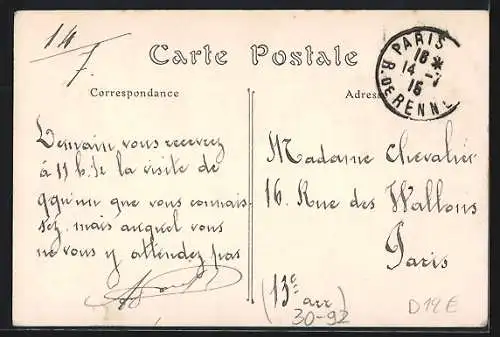 14/7
Carte Postale
PARIS
16 *
14 - 7
15
R. DE RENNE
Correspondance
Adresse
Demain vous recevrez
à 11 h. ½ la visite de
qqu'un que vous connais-
sez, mais auquel vous
ne vous y attendez pas
Madame Chevalier
16. Rue des Wallons
Paris
(13e arr)
30-92
D12E